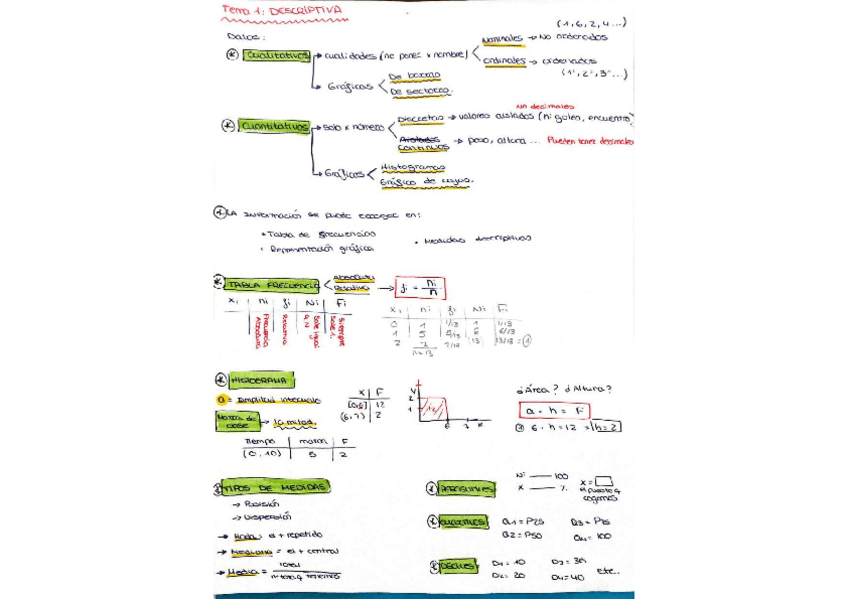 Tema 1: DESCRIPTIVA
Datos:
(1, 6, 2, 4...)
Cualitativos → cualidades (no ponez x nombre) Nominales → No ordenados
ordinales → ordenados
(1º, 2º, 3º...)
→ Gráficos De barras
De sectores.
No decimales
Cuantitativos → Solo x número Discretas → valores aislados (nº goles, encuentro)
Continuos → peso, altura ... Pueden tener decimales
→ Gráficos Histogramas
Gráfico de cajas.
LA Información se puede recoger en:
• Tabla de frecuencias • Medidas descriptivas
• Representación gráfica
TABLA FRECUENCIA Absoluta
Relativa → fi = ni/n
xi ni fi Ni Fi
Frecuencia Absoluta Relativa Sale igual a N Siempre sale 1.
xi ni fi Ni Fi
0 1 1/13 1 1/13
1 5 5/13 6 6/13
2 7 7/13 13 13/13 = 1
n=13
HISTOGRAMA
a = Amplitud intervalo
x F
[0,6] 12
(6,7) 2
2
1
6 7 x
¿Área? ¿Altura?
a · h = F
6 · h = 12 = h = 2
Marca de clase → la mitad.
Tiempo marca F
(0, 10) 5 2
TIPOS DE MEDIDAS
→ Posición
→ Dispersión
→ Moda = el + repetido
→ Mediana = el + central
→ Media = total
Ni — 100
x — %
x =
Q1 = P25 Q3 = P75
Q2 = P50 Q4 = 100
DECILES D1 = 10 D3 = 30 etc..
D2 = 20 D4 = 40